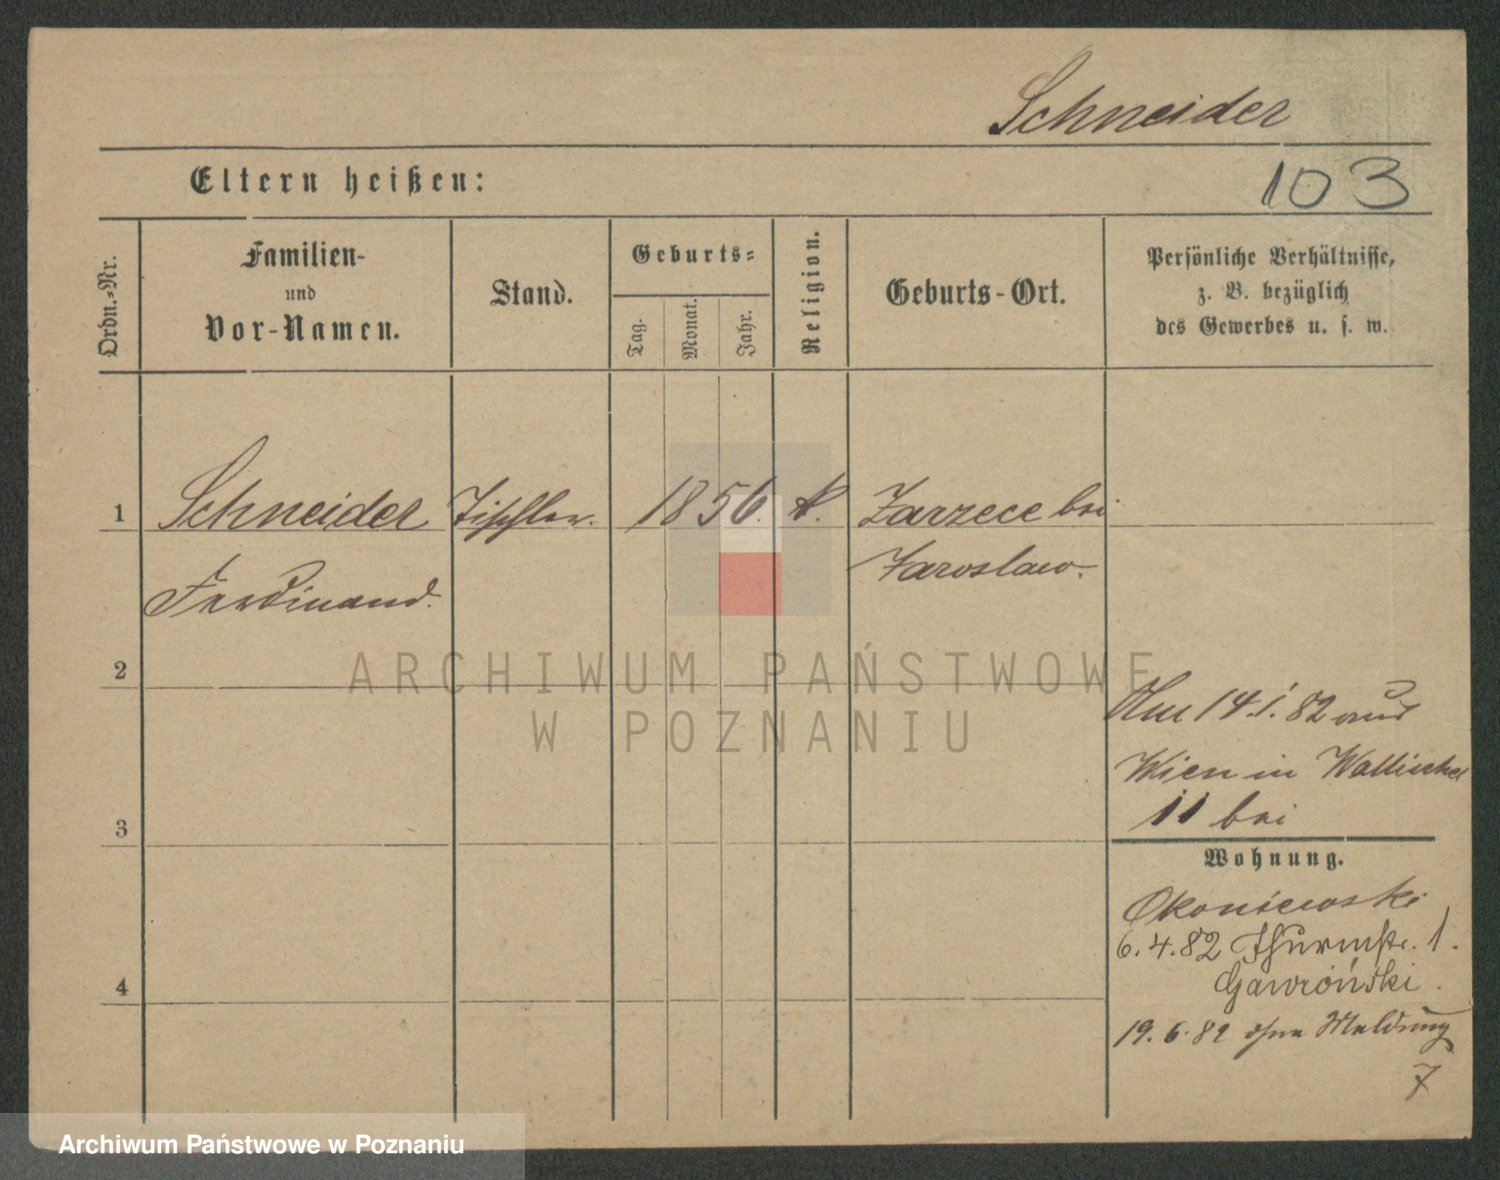 Schneider
Eltern heißen:
103
Ordn.-Nr.
Familien-
und
Vor-Namen.
Stand.
Geburts-
Tag.
Monat.
Jahr.
Religion.
Geburts-Ort.
Persönliche Verhältnisse,
z. B. bezüglich
des Gewerbes u. s. w.
1 Schneider Tischler. 1856. k. Zarzece bei
Ferdinand. Jaroslaw.
2
Am 14.1.82 aus
Wien in Wallischei
11 bei
3
Wohnung.
Okoniewski
6.4.82 Thurmstr. 1.
4
Gawroński.
19.6.82 ohne Meldung
ARCHIWUM PAŃSTWOWE
W POZNANIU
Archiwum Państwowe w Poznaniu